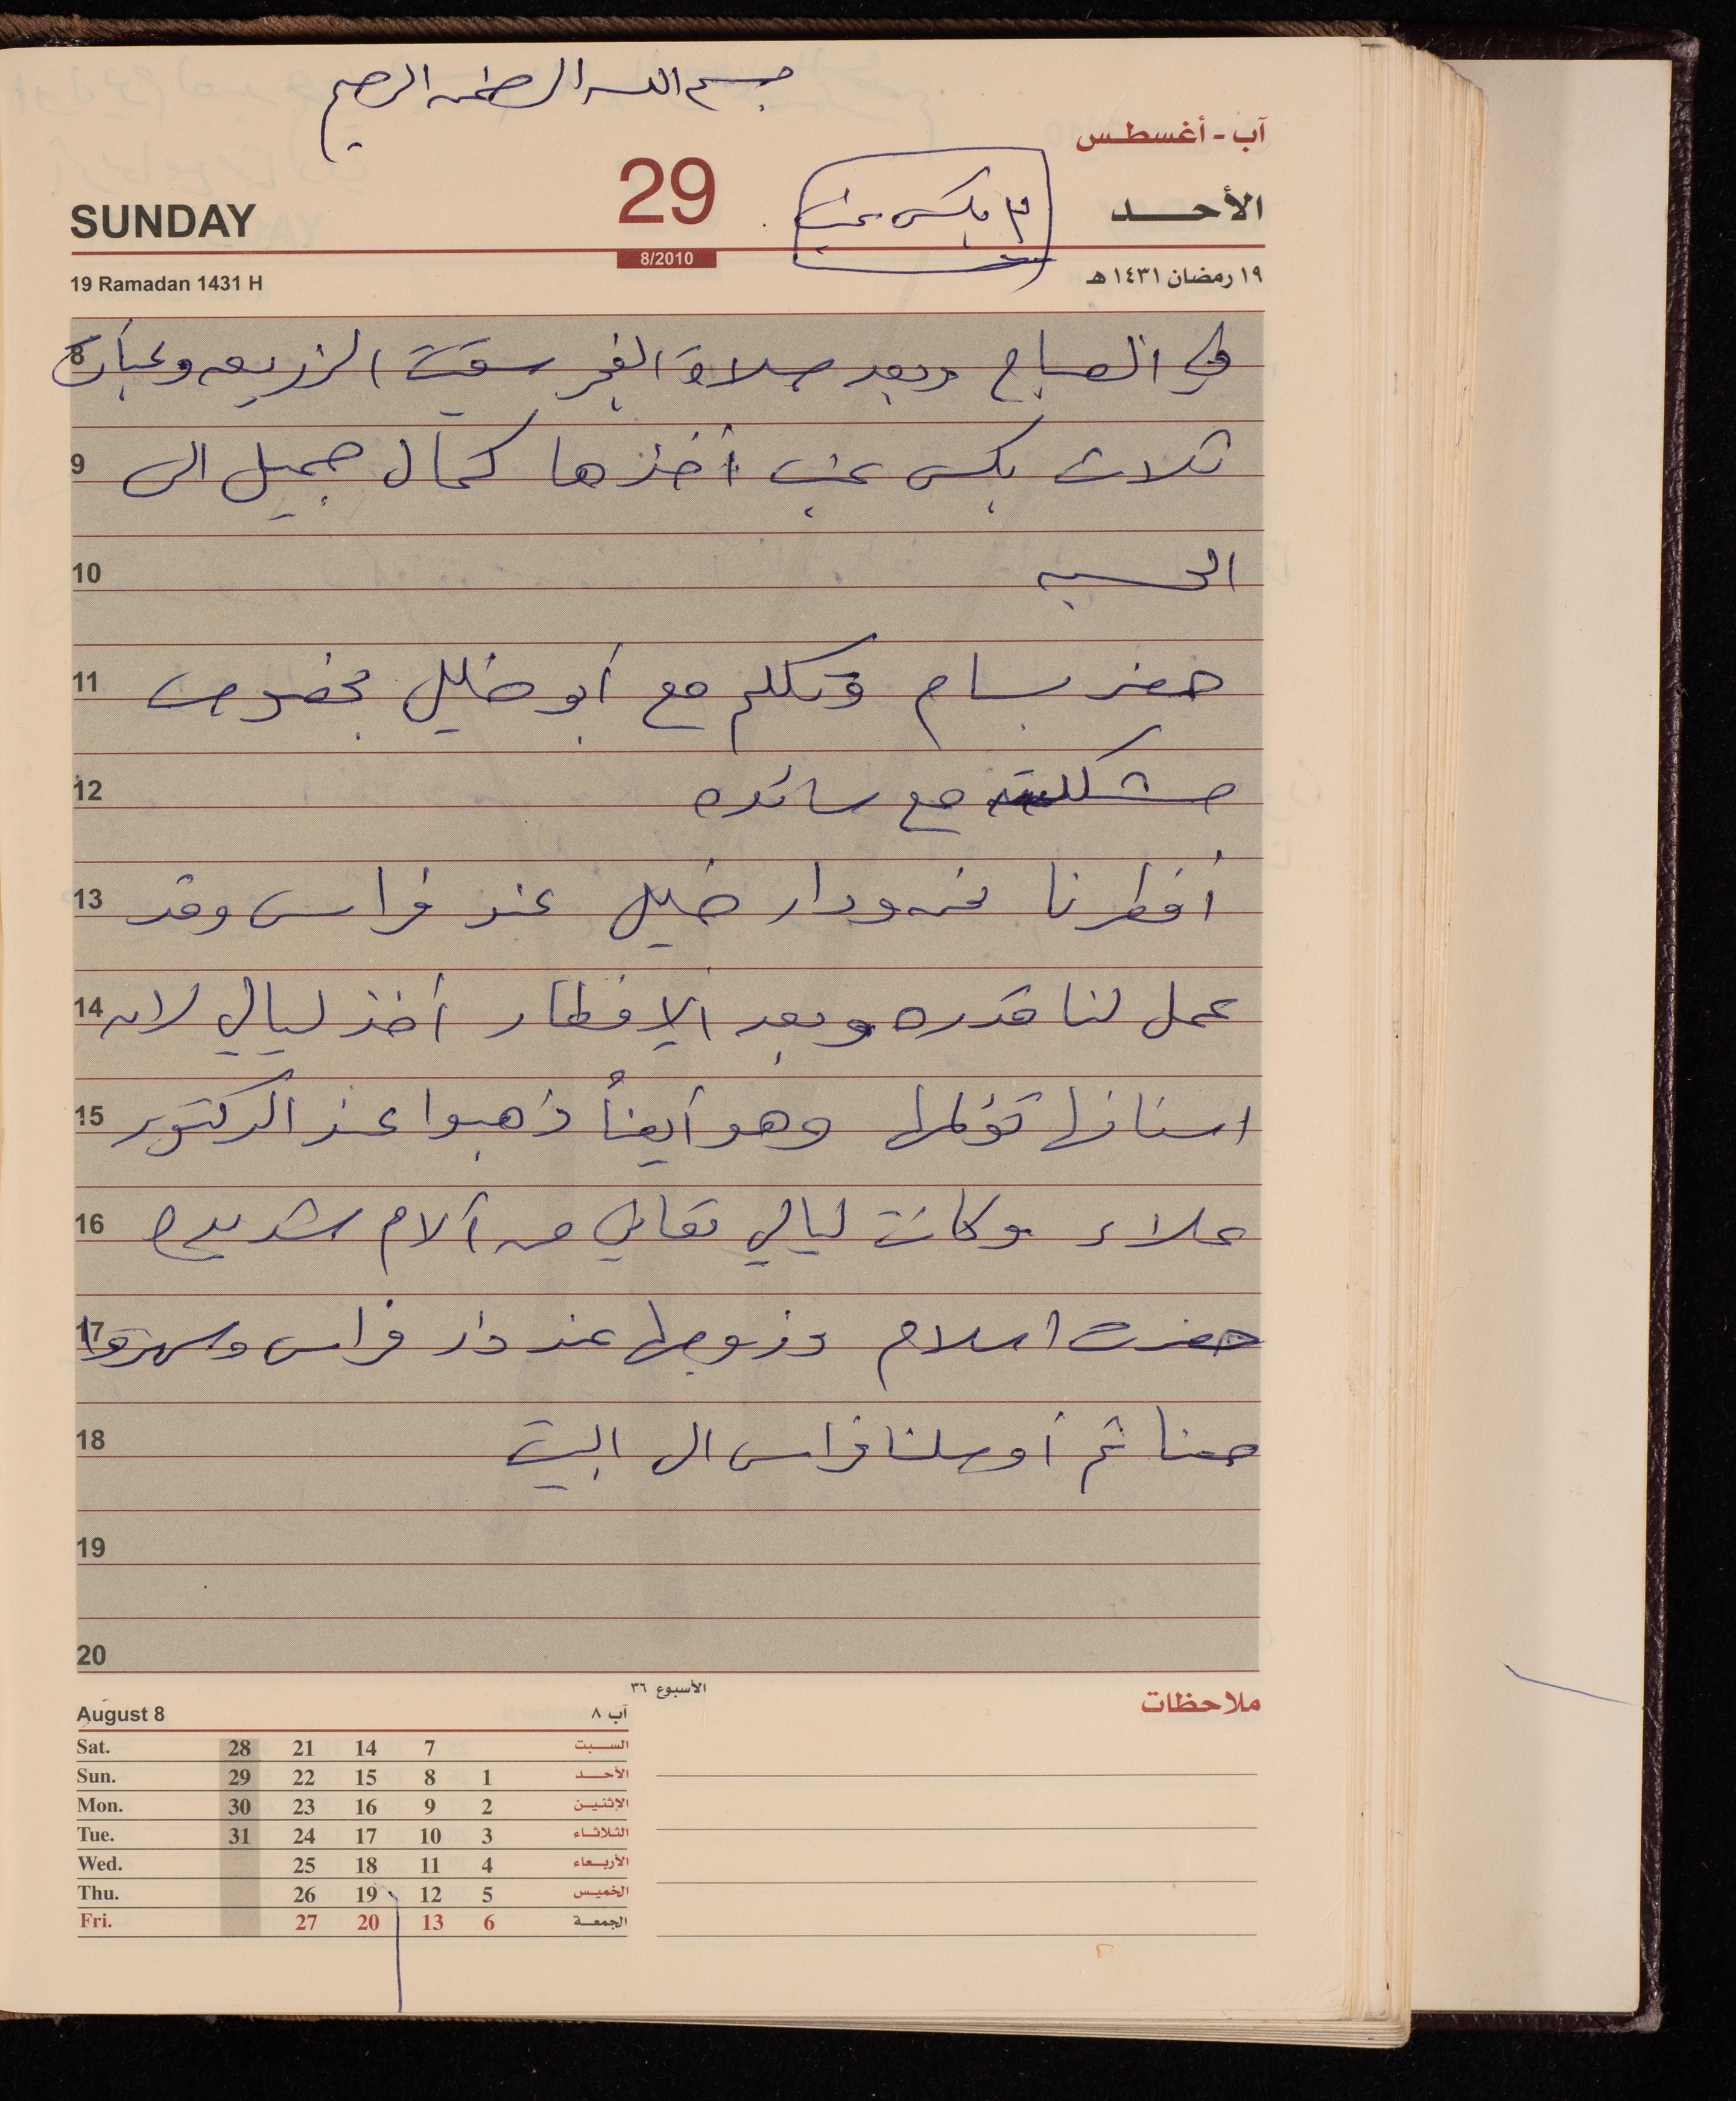 بسم الله الرحمن الرحيم
آب - أغسطس
SUNDAY 29 ٣ بكس عنب الأحد
8/2010
19 Ramadan 1431 H ١٩ رمضان ١٤٣١ هـ
8 في الصباح وبعد صلاة الفجر سقيت الزريعه وعبأت
9 ثلاث بكس عنب أخذها كمال جميل الى
10 الحسبه
11 حضر بسام وتكلم مع أبو خليل بخصوص
12 مشكلته مع سائده
13 أفطرنا نحن ودار خليل عند فراس وقد
14 عمل لنا قدره وبعد الإفطار أخذ ليالي لان
15 اسنانها تؤلمها وهو أيضاً ذهبوا عند الدكتور
16 علاء وكانت ليالي تعاني من آلام شديده
17 حضرت اسلام وزوجها عند دار فراس وسهروا
18 معنا ثم أوصلنا فراس الى البيت
19
20
الأسبوع ٣٦ ملاحظات
August 8 آب ٨
Sat. 28 21 14 7 السبت
Sun. 29 22 15 8 1 الأحد
Mon. 30 23 16 9 2 الإثنين
Tue. 31 24 17 10 3 الثلاثاء
Wed. 25 18 11 4 الأربعاء
Thu. 26 19 12 5 الخميس
Fri. 27 20 13 6 الجمعة